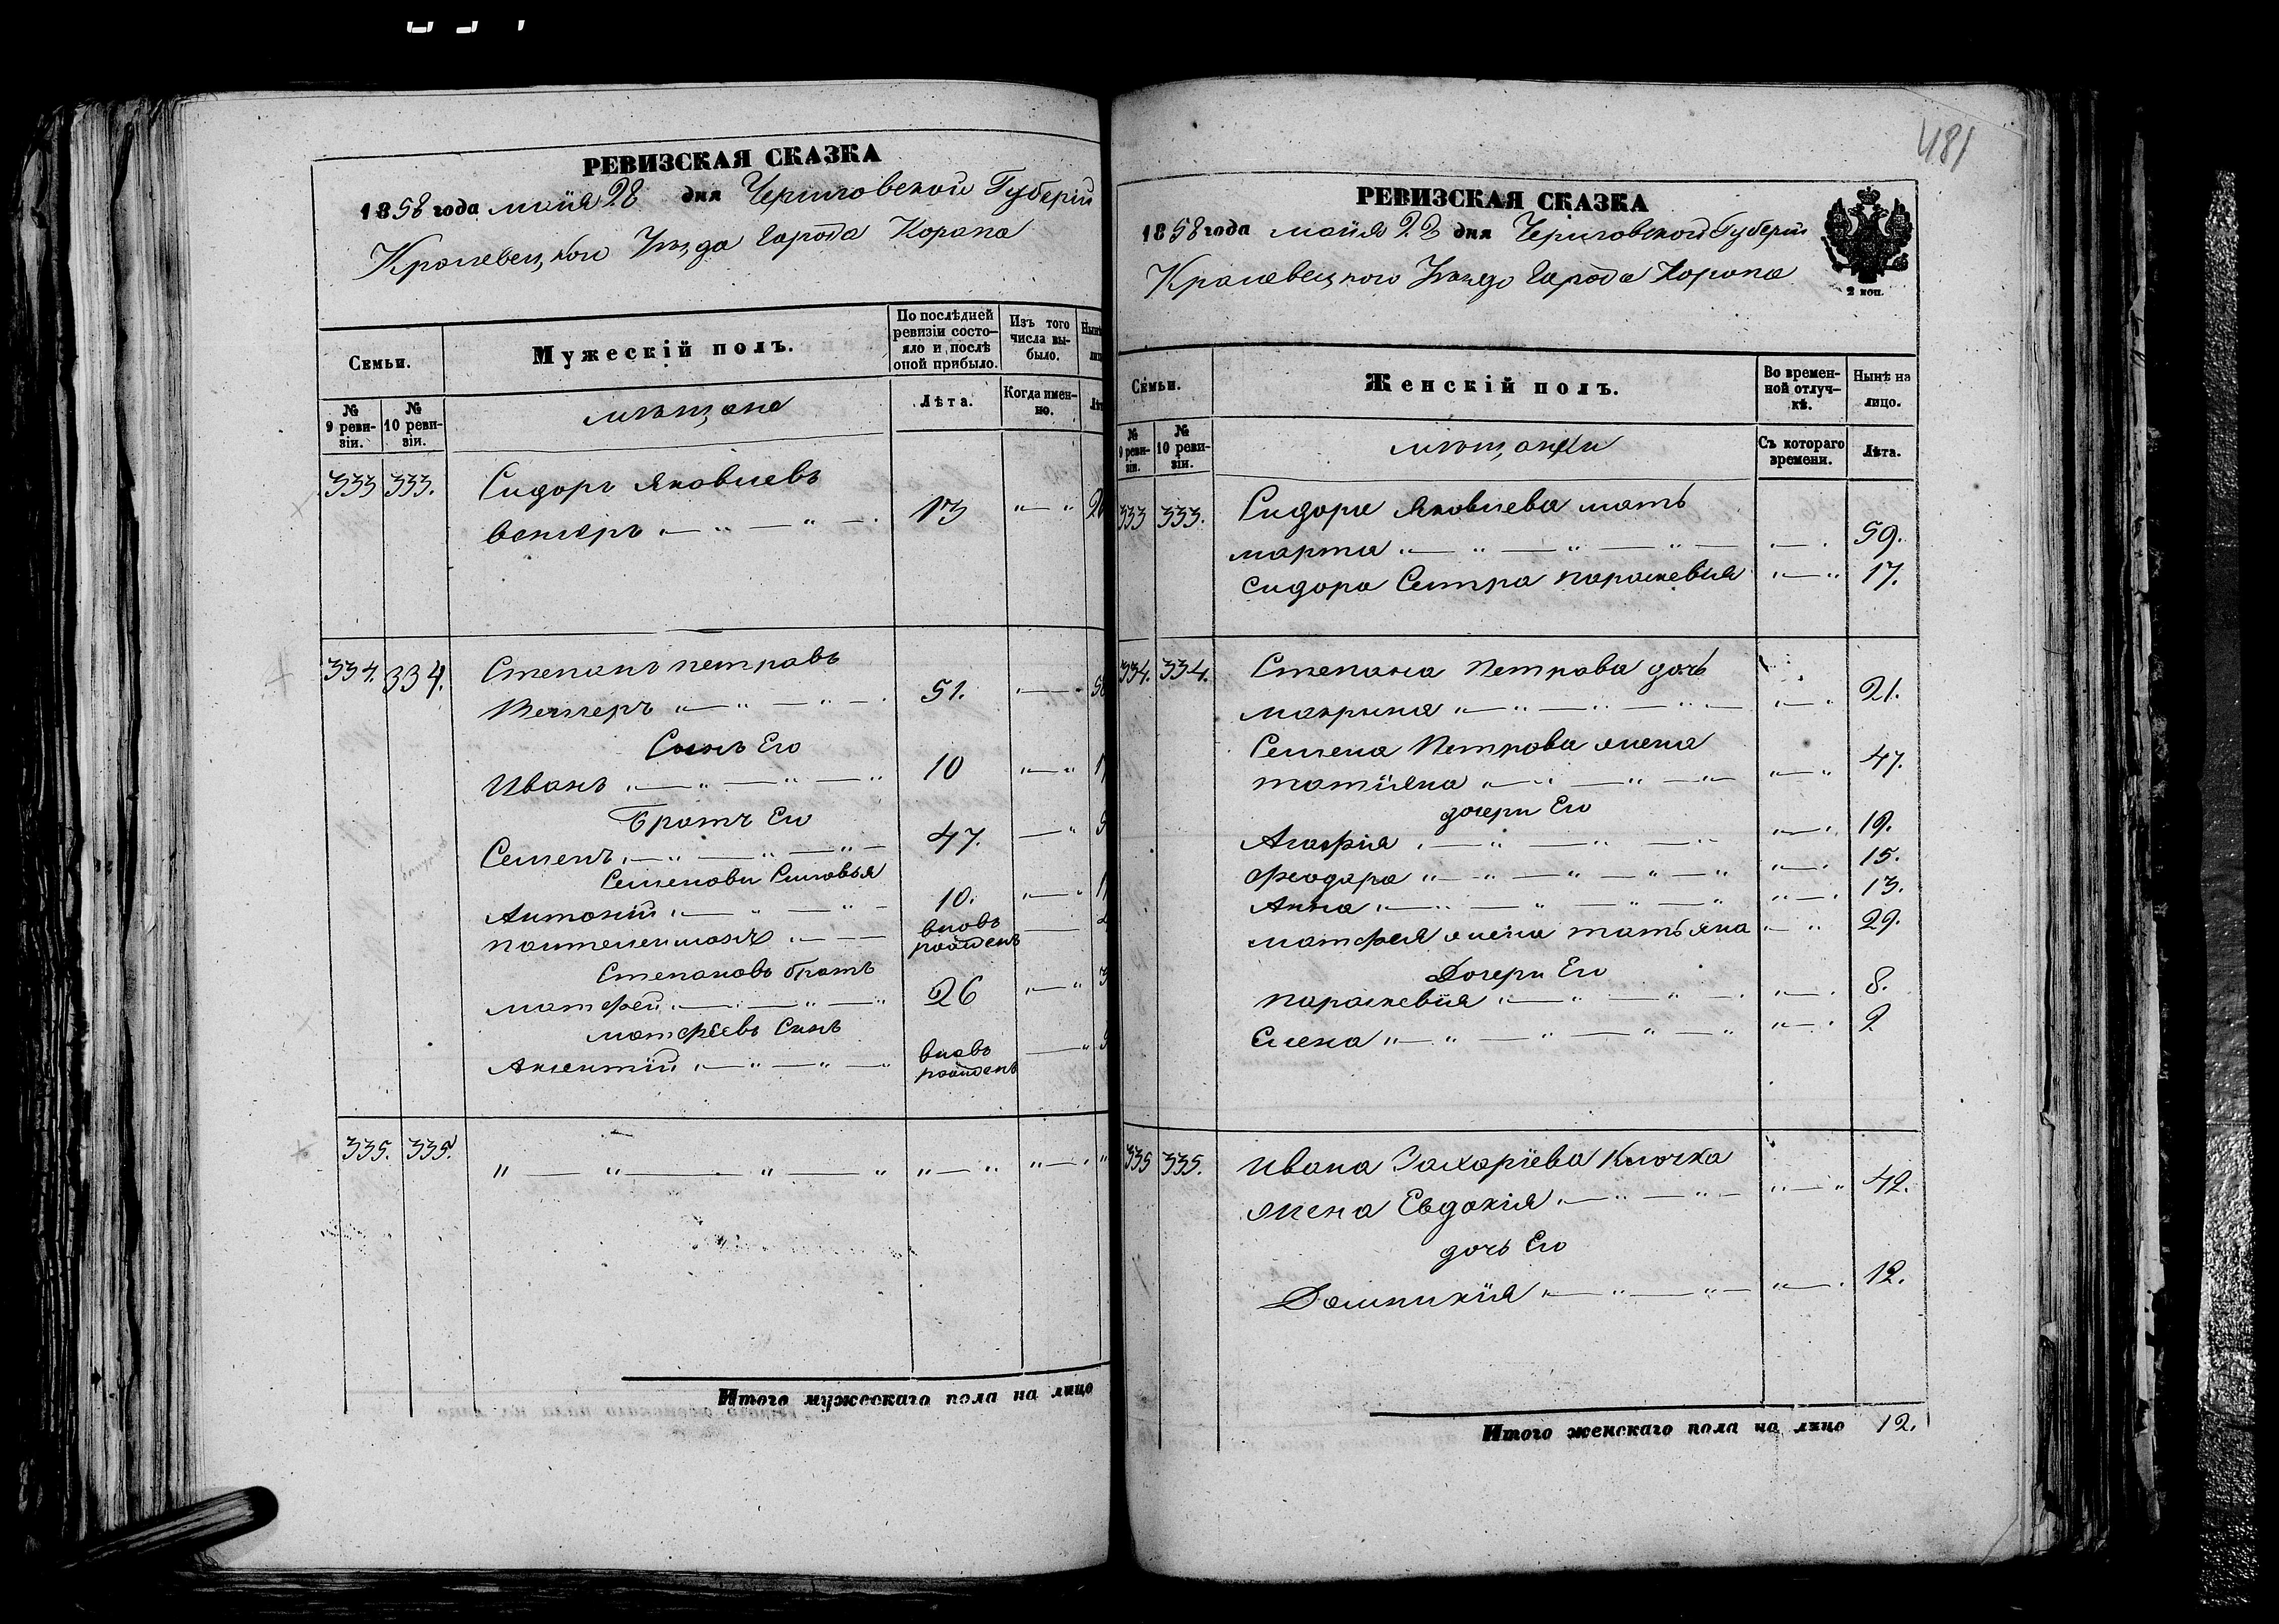 РЕВИЗСКАЯ СКАЗКА
1858 года майя 28 дня Черниговской Губерніи
Кролевецкого Уѣзда Города Коропа
Семьи.
Мужескій полъ.
По послѣдней ревизіи состояло и послѣ оной прибыло.
Изъ того числа выбыло.
№ 9 ревизіи.
№ 10 ревизіи.
мѣщане
Лѣта.
Когда именно.
333 333. Сидоръ Яковлевъ
13
334. 334. Степанъ петровъ
51.
Сынъ Его
Иванъ 10
Братъ Его
Семенъ 47.
Семеновы Сыновья
Антоній 10.
пантелеимонъ вновь рожденъ
Степановъ братъ
матфей 26
матфеевъ Сынъ
Аксентій вновь рожденъ
335. 335.
Итого мужескаго пола на лицо
481
РЕВИЗСКАЯ СКАЗКА
1858 года майя 28 дня Черниговской Губерніи
Кролевецкого Уѣзда Города Коропа
2 коп.
Семьи.
Женскій полъ.
Во временной отлучкѣ.
Нынѣ на лицо.
№ 9 ревизіи.
№ 10 ревизіи.
мѣщанки
Съ котораго времени.
Лѣта.
333 333. Сидора Яковлева мать
марта 59.
Сидора Сестра параскевия 17.
334. 334. Степана Петрова дочь
макрына 21.
Семена Петрова жена
татіяна 47.
дочери Его
Агафія 19.
феодора 15.
Анна 13.
матфея жена татьяна 29.
Дочери Его
параскевія 8.
Елена 2
335 335. Ивана Захаріева Клочка
жена Евдокія 42.
дочь Его
Домникія 12.
Итого женскаго пола на лицо 12.